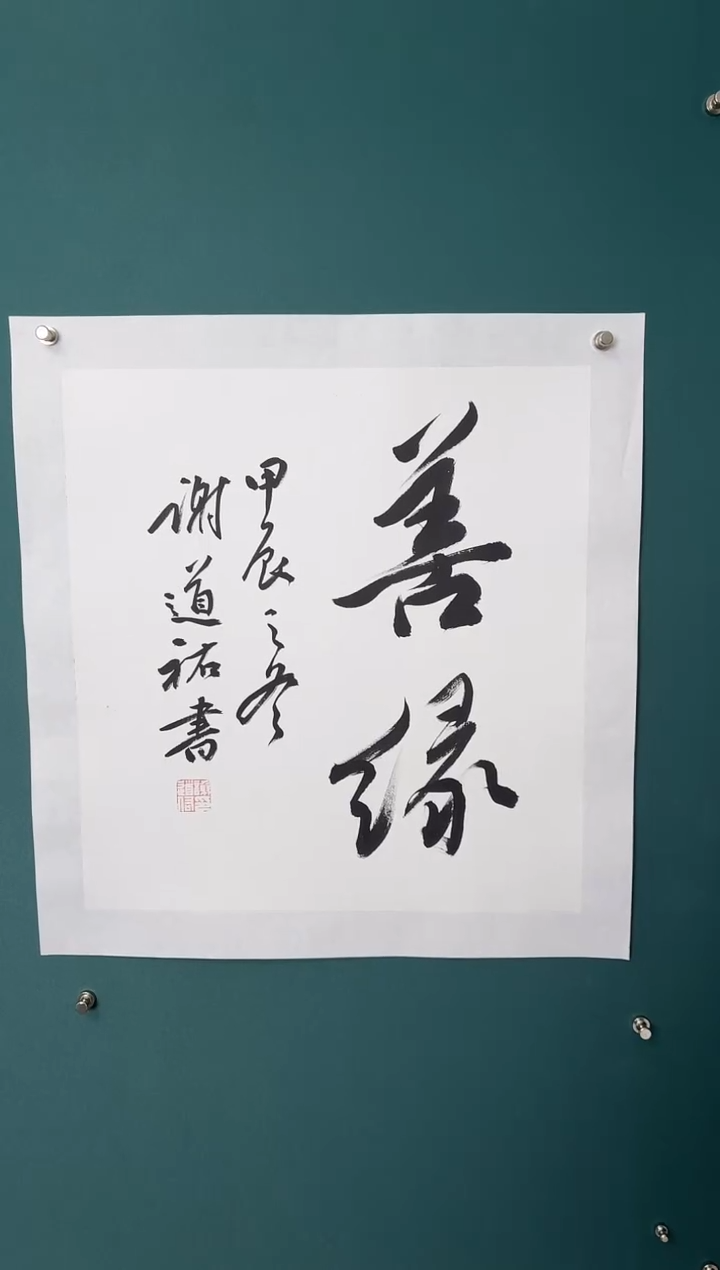 善缘
甲辰之冬
谢道祐書